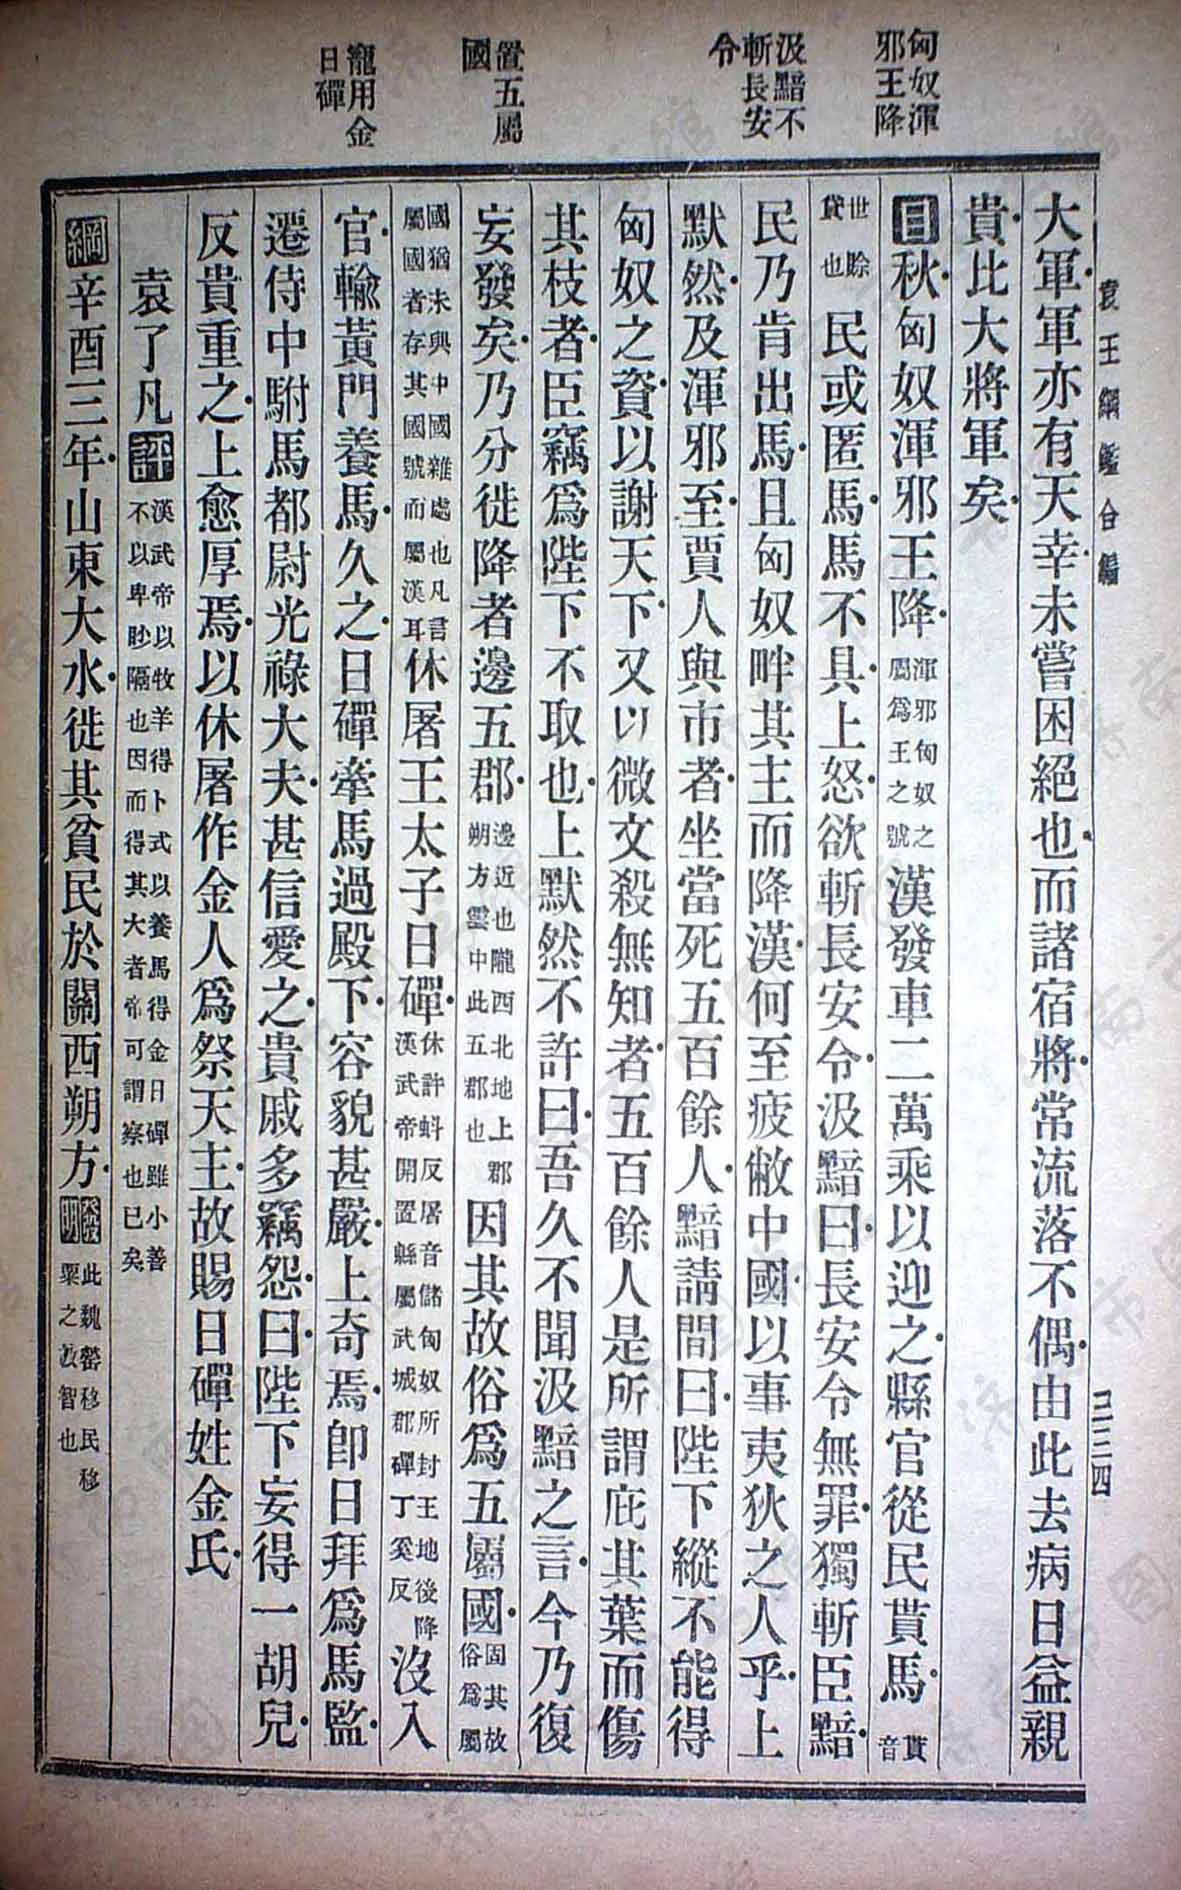 匈奴渾
邪王降
汲黯不
斬長安
令
置五屬
國
寵用金
日磾
袁王綱鑑合編
二三四
大軍軍亦有天幸未嘗困絕也而諸宿將常流落不偶由此去病日益親
貴比大將軍矣
目秋匈奴渾邪王降渾邪匈奴之屬爲王之號漢發車二萬乘以迎之縣官從民貰馬貰音
世賒貸也民或匿馬馬不具上怒欲斬長安令汲黯曰長安令無罪獨斬臣黯
民乃肯出馬且匈奴畔其主而降漢何至疲敝中國以事夷狄之人乎上
默然及渾邪至賈人與市者坐當死五百餘人黯請間曰陛下縱不能得
匈奴之資以謝天下又以微文殺無知者五百餘人是所謂庇其葉而傷
其枝者臣竊爲陛下不取也上默然不許曰吾久不聞汲黯之言今乃復
妄發矣乃分徙降者邊五郡邊近也隴西北地上郡朔方雲中此五郡也因其故俗爲五屬國因其故俗爲屬
國猶未與中國雜處也凡言屬國者存其國號而屬漢耳休屠王太子日磾休許蚪反屠音儲匈奴所封王地後降漢武帝開置縣屬武城郡磾丁奚反沒入
官輸黃門養馬久之日磾牽馬過殿下容貌甚嚴上奇焉卽日拜爲馬監
遷侍中駙馬都尉光祿大夫甚信愛之貴戚多竊怨曰陛下妄得一胡兒
反貴重之上愈厚焉以休屠作金人爲祭天主故賜日磾姓金氏
袁了凡評漢武帝以牧羊得卜式以養馬得金日磾雖小善不以卑眇隔也因而得其大者帝可謂察也已矣
綱辛酉三年山東大水徙其貧民於關西朔方發明此魏罃移民移粟之故智也